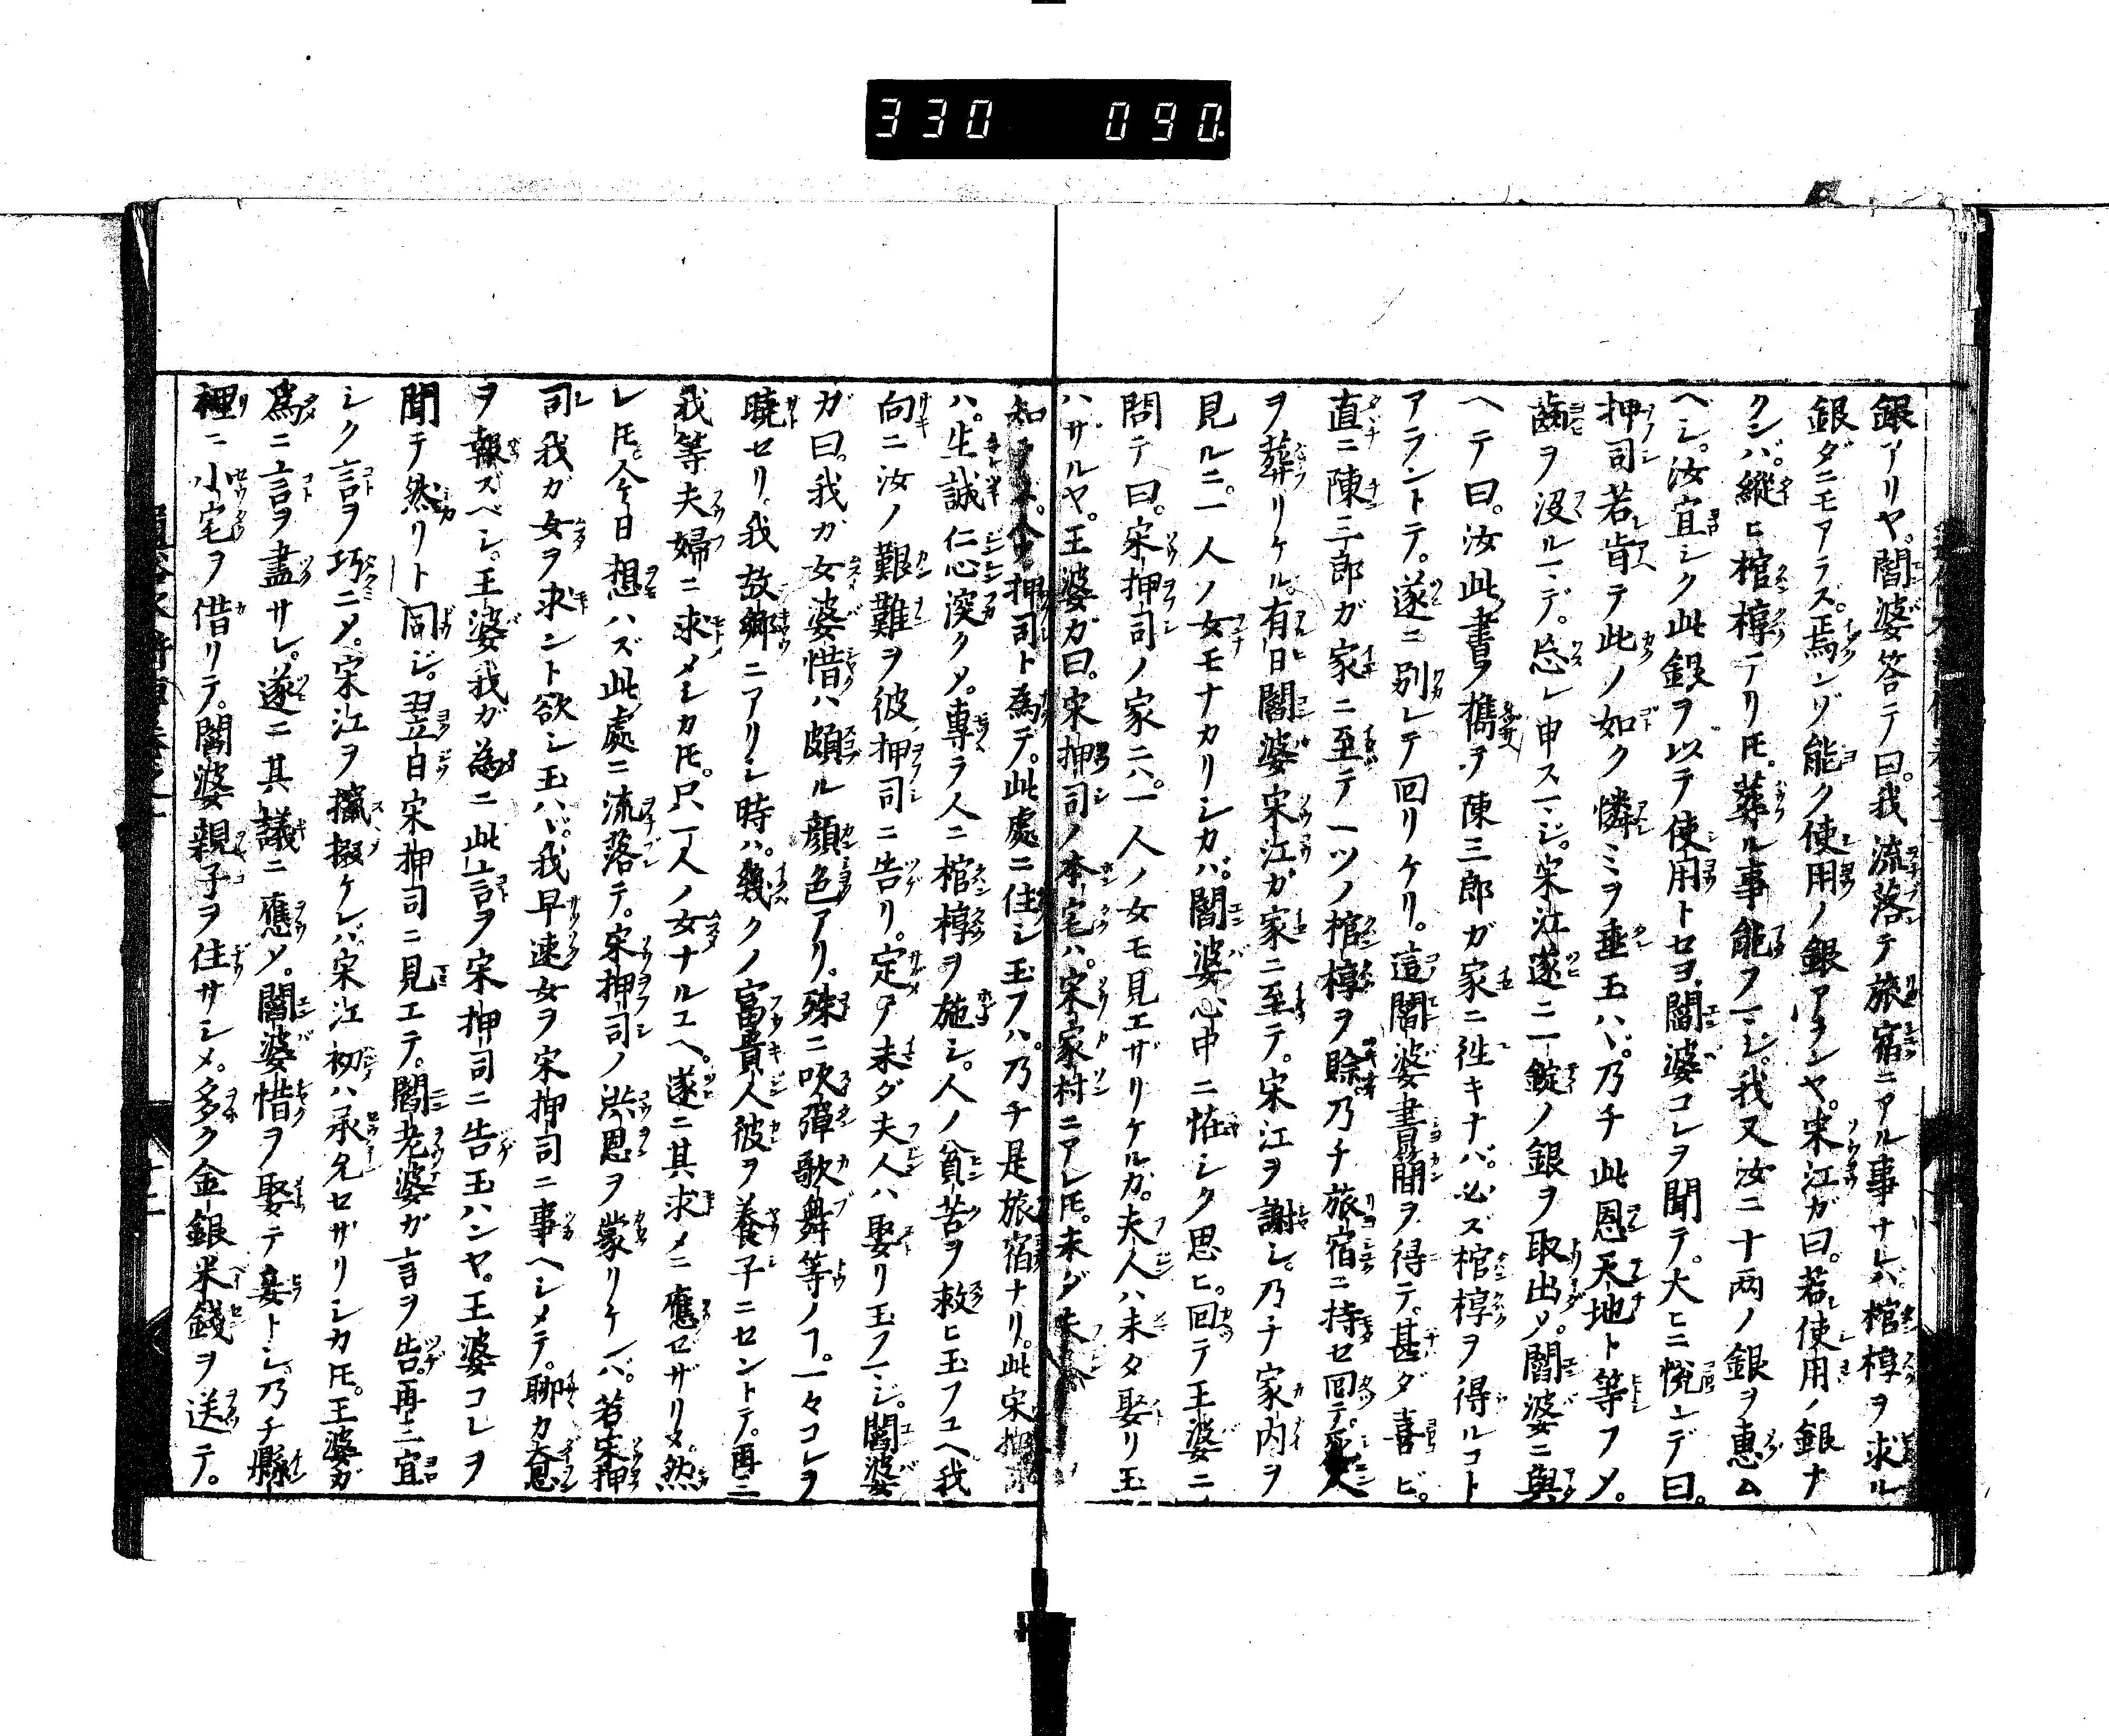 330 090.
銀アリヤ。閻婆答テ曰。我流落テ旅宿ニアル事サレハ棺椁ヲ求ル
銀ダニモアラズ。焉ンゾ能ク使用ノ銀アランヤ。宋江ガ曰。若使用ノ銀ナ
クンバ。縦ヒ棺椁アリ𪜈。葬ル事能フマシ。我又汝ニ十両ノ銀ヲ恵ム
ベシ。汝宜シク此銀ヲ以テ使用トセヨ。閻婆コレヲ聞テ。大ヒニ悦ンデ曰。
押司若肯テ此ノ如ク憐ミヲ垂玉ハヾ。乃チ此恩天地ト等フメ。
齒ヲ没ルマデ。忘レ申スマジ。宋江遂ニ一錠ノ銀ヲ取出メ。閻婆ニ與
ヘテ曰。汝此書ヲ携ヘテ陳三郎ガ家ニ徃キナバ。必ズ棺椁ヲ得ルコト
アラントテ。遂ニ別レテ回リケリ。這閻婆書簡ヲ得テ。甚ダ喜ビ。
直ニ陳三郎ガ家ニ至テ一ツノ棺椁ヲ賖乃チ旅宿ニ持セ回テ。死人
ヲ葬リケル。有日閻婆宋江ガ家ニ至テ。宋江ヲ謝シ。乃チ家内ヲ
見ルニ。一人ノ女モナカリシカバ。閻婆心中ニ恠シク思ヒ。回テ王婆ニ
問テ曰。宋押司ノ家ニハ。一人ノ女モ見エザリケルガ。夫人ハ未タ娶リ玉
ハザルヤ。王婆ガ曰。宋押司ノ本宅ハ。宋家村ニアレ𪜈。未ダ夫人
知ラズ。今押司ト為テ。此處ニ住シ玉フハ。乃チ是旅宿ナリ。此宋押司
ハ。生誠仁心深クメ。専ラ人ニ棺椁ヲ施シ。人ノ貧苦ヲ救ヒ玉フユヘ我
向ニ汝ノ艱難ヲ彼押司ニ告リ。定テ未ダ夫人ハ娶リ玉フマジ。閻婆
ガ曰。我ガ女婆惜ハ頗ル顔色アリ。殊ニ吹彈歌舞等ノヿ。一々コレヲ
曉セリ。我故郷ニアリシ時ハ。幾クノ富貴人彼ヲ養子ニセントテ。再三
我等夫婦ニ求メシカ𪜈。只一人ノ女ナルユヘ。遂ニ其求メニ應ゼザリキ。然
レ𪜈。今日想ハズ此處ニ流落テ。宋押司ノ洪恩ヲ蒙リケレバ。若宋押
司我ガ女ヲ求ント欲シ玉ハヾ。我早速女ヲ宋押司ニ事ヘシメテ。聊カ大恩
ヲ報ズベシ。王婆我ガ為ニ此言ヲ宋押司ニ告玉ハンヤ。王婆コレヲ
聞テ然リト同ジ。翌日宋押司ニ見エテ。閻老婆ガ言ヲ告。再三宜
シク言ヲ巧ニメ。宋江ヲ攛掇ケレバ。宋江初ハ承允セザリシカ𪜈。王婆ガ
爲ニ言ヲ盡サレ。遂ニ其議ニ應メ。閻婆惜ヲ娶テ妾トシ。乃チ縣
裡ニ小宅ヲ借リテ。閻婆親子ヲ住サシメ。多ク金銀米錢ヲ送テ。